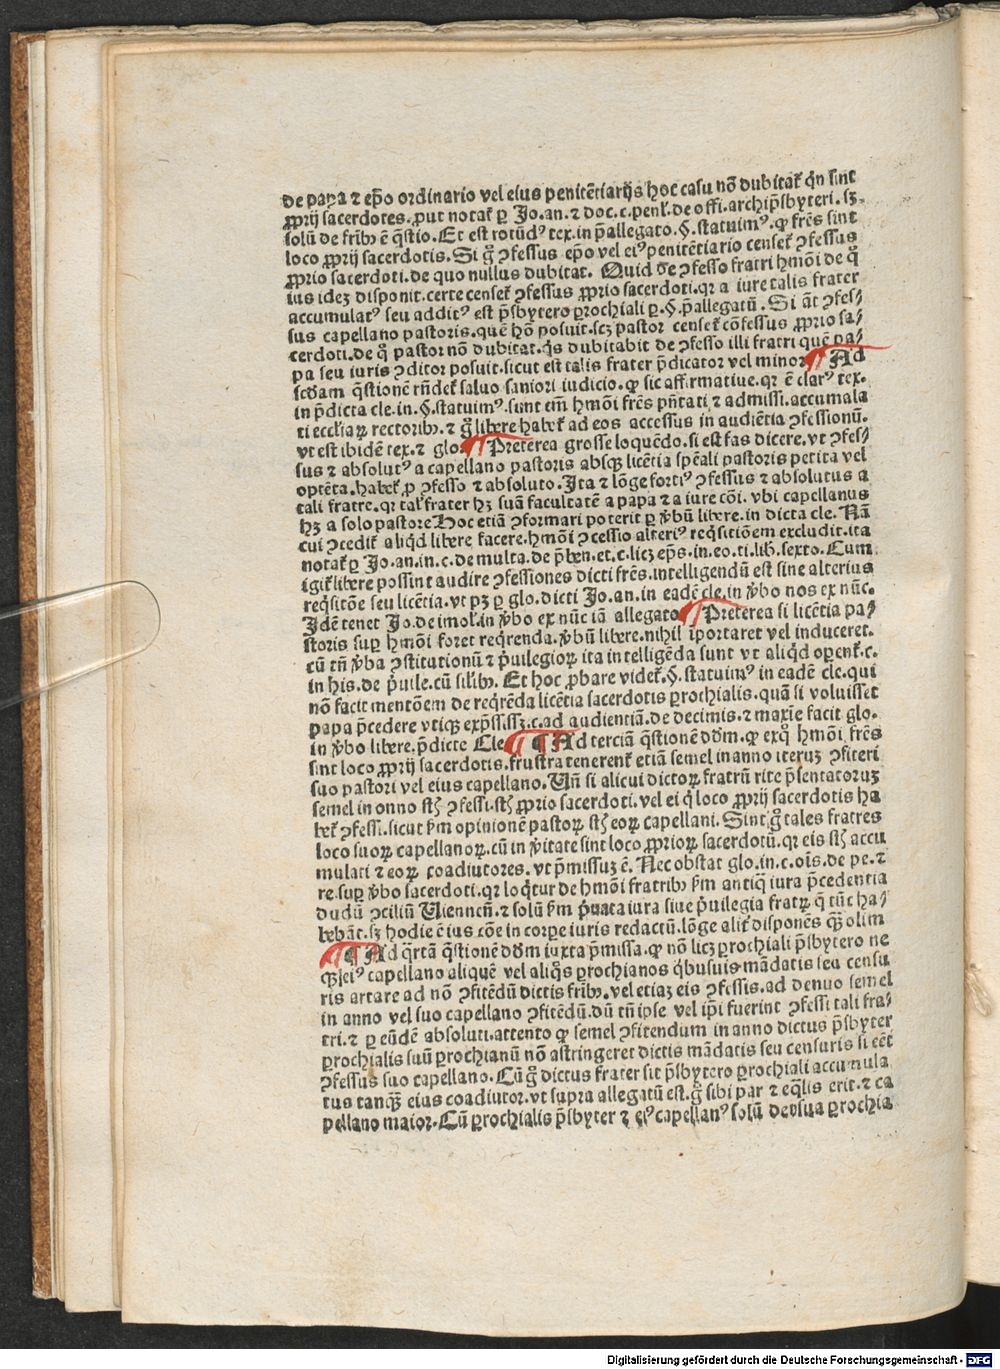 de papa ⁊ ep̄o ordinario vel eius penitētiarijs hoc casu nō dubitat᷑ q̄n sint
ꝓprij sacerdotes. ꝓut notat᷑ ꝑ Jo. an. ⁊ doc. c. penl᷑. de offi. archip̄sbyteri. sꝫ
solū de frībꝰ ē q̄stio. Et est rotūdꝰ tex. in p̄allegato. §. statuimꝰ. ꝙ fr̄es sint
loco ꝓprij sacerdotis. Si g̊ ꝯfessus ep̄o vel eiꝰ penitētiario censet᷑ ꝯfessus
ꝓprio sacerdoti. de quo nullus dubitat. Quid de ꝯfesso fratri hmōi de q̊
ius ideꝫ disponit. certe censet᷑ ꝯfessus ꝓprio sacerdoti. qꝛ a iure talis frater
accumulatꝰ seu additꝰ est p̄sbytero ꝑrochiali ꝑ. §. p̄allegatū. Si āt ꝯfes⸗
sus capellano pastoris. quē hō posuit. scꝫ pastor censet᷑ cōfessus ꝓprio sa⸗
cerdoti. de q̊ pastor nō dubitat. q̇s dubitabit de ꝯfesso illi fratri quē pa⸗
pa seu iuris ꝯditor posuit. sicut est talis frater p̄dicator vel minor ¶ Ad
scd̄am q̄stionē rn̄det᷑ saluo saniori iudicio. ꝙ sic affirmatiue. qꝛ ē clarꝰ tex.
in p̄dicta cle. in. §. statuimꝰ. sunt em̄ hmōi fr̄es pn̄tati ⁊ admissi. accumula
ti ecclīaꝝ rectoribꝰ. ⁊ g̊ libere habet᷑ ad eos accessus in audiētia ꝯfessionū.
vt est ibidē tex. ⁊ glo. ¶ Preterea grosse loquēdo. si est fas dicere. vt ꝯfes⸗
sus ⁊ absolutꝰ a capellano pastoris absqꝫ licētia spēali pastoris petita vel
optēta. habet᷑ ꝓ ꝯfesso ⁊ absoluto. Ita ⁊ lōge fortiꝰ ꝯfessus ⁊ absolutus a
tali fratre. qꝛ tal᷑ frater hꝫ suā facultatē a papa ⁊ a iure cōi. vbi capellanus
hꝫ a solo pastore Hoc etiā ꝯformari poterit ꝑ v̄bū libere. in dicta cle. Nā
cui ꝯcedit᷑ aliqd̄ libere facere. hmōi ꝯcessio alteriꝰ reqͥsitiōem excludit. ita
notat᷑ ꝑ Jo. an. in. c. de multa. de p̄ben. et. c. licꝫ ep̄s. in. eo. ti. lib̄. sexto. Cum
igit᷑ libere possint audire ꝯfessiones dicti fr̄es. intelligendū est sine alterius
reqͥsitōe seu licētia. vt pꝫ ꝑ glo. dicti Jo. an. in eadē cle. in v̄bo nos ex nūc.
Idē tenet Jo. de imol᷑. in v̄bo ex nūc iā allegato ¶ Preterea si licētia pa⸗
storis suꝑ hmōi foret reqͥrenda. v̄bū libere. nihil iportaret vel induceret.
cū tn̄ v̄ba ꝯstitutionū ⁊ p̄uilegioꝝ ita intelligēda sunt vt aliqd̄ oꝑent᷑. c.
in his. de p̄uile. cū sil᷑ibꝰ. Et hoc ꝓbare videt᷑. §. statuimꝰ in eadē cle. qui
nō facit mentōem de reqͥrēda licētia sacerdotis ꝑrochialis. quā si voluisset
papa p̄cedere vtiqꝫ exp̄ssissꝫ. c. ad audientiā. de decimis. ⁊ maxīe facit glo.
in v̄bo libere. p̄dicte Cle ¶ ¶ Ad terciā q̄stionē dd̄m. ꝙ exq̊ hmōi fr̄es
sint loco ꝓprij sacerdotis. frustra tenerent᷑ etiā semel in anno iteruꝫ ꝯfiteri
suo pastori vel eius capellano. Vn̄ si alicui dictoꝝ fratrū rite p̄sentatoruꝫ
semel in onno st̄ ꝯfessi. st̄ ꝓprio sacerdoti. vel ei q̇ loco ꝓprij sacerdotis ha
bet᷑ ꝯfessi. sicut ẜm opinionē pastoꝝ st̄ eoꝝ capellani. Sint g̊ tales fratres
loco suoꝝ capellanoꝝ. cū in v̄itate sint loco ꝓprioꝝ sacerdotū. qꝛ eis st̄ accu
mulati ⁊ eoꝝ coadiutores. vt p̄missuꝫ ē. Nec obstat glo. in. c. oīs. de pe. ⁊
re. suꝑ v̄bo sacerdoti. qꝛ loqͥtur de hmōi fratribꝰ ẜm antiq̄ iura p̄cedentia
dudū ꝯciliū Viennen̄. ⁊ solū ẜm p̄uata iura siue p̄uilegia fratꝝ q̄ tūc ha⸗
bebāt. sꝫ hodie ē ius cōe in corꝑe iuris redactū. lōge alit᷑ disponēs qͣꝫ olim
¶ ¶ Ad qͣrtā q̄stionē dd̄m iuxta p̄missa. ꝙ nō licꝫ ꝑrochiali p̄sbytero ne
qꝫ eiꝰ capellano aliquē vel aliq̊s ꝑrochianos qͥbusuis mādatis seu censu
ris artare ad nō ꝯfitēdū dictis frībꝰ. vel etiaꝫ eis ꝯfessis. ad denuo semel
in anno vel suo capellano ꝯfitēdū. dū tn̄ ipse vel ip̄i fuerint ꝯfessi tali fra⸗
tri. ⁊ ꝑ eūdē absoluti. attento ꝙ semel ꝯfitendum in anno dictus p̄sbyter
ꝑrochialis suū ꝑrochianū nō astringeret dictis mādatis seu censuris si eēt
ꝯfessus suo capellano. Cū g̊ dictus frater sit p̄sbytero ꝑrochiali accumula
tus tanqͣꝫ eius coadiutor. vt supra allegatū est. g̊ sibi par ⁊ eq̄lis erit. ⁊ ca
pellano maior. Cū ꝑrochialis p̄sbyter ⁊ eiꝰ capellanꝰ solū de sua ꝑrochia
Digitalisierung gefördert durch die Deutsche Forschungsgemeinschaft - DFG